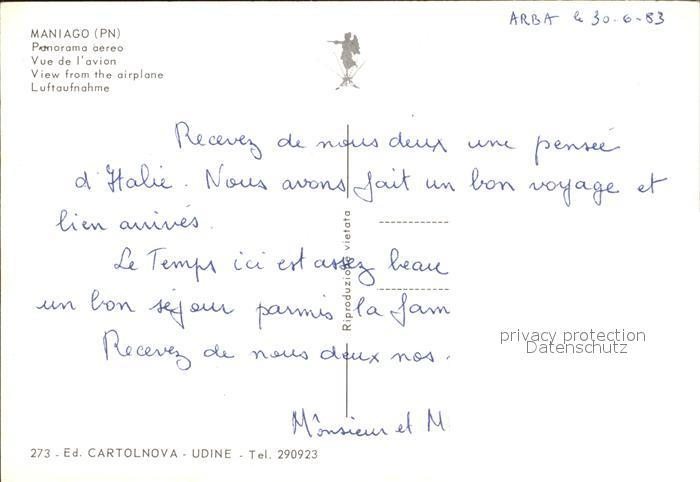 ARBA le 30-6-83
MANIAGO (PN)
Panorama aereo
Vue de l'avion
View from the airplane
Luftaufnahme
Recevez de nous deux une pensée
d'Italie. Nous avons fait un bon voyage et
bien arrivés.
Le Temps ici est assez beau
un bon séjour parmis la fam
Recevez de nous deux nos
Monsieur et M
Riproduzione vietata
privacy protection
Datenschutz
273 - Ed. CARTOLNOVA - UDINE - Tel. 290923